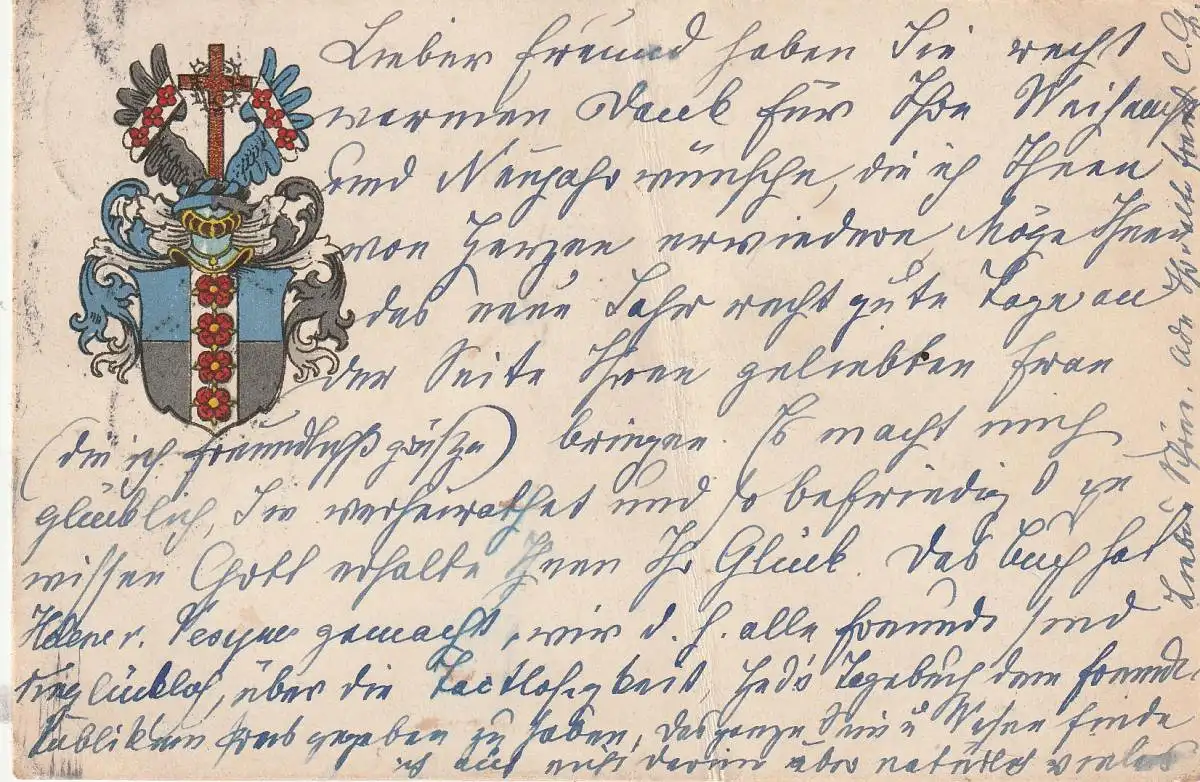 Lieber Freund haben Sie recht
warmen Dank für Ihre Weihnacht
und Neujahrwünsche, die ich Ihnen
von Herzen erwiedere, Möge Ihnen
das neue Jahr recht gute Tage an
der Seite Ihrer geliebten Frau
(die ich freundlichst grüsze) bringen. Es macht mich
glücklich, Sie verheirathet und so befriedigt zu
wissen Gott erhalte Ihnen Ihr Glück. Das Buch hat
Helene v. gemacht, wir d. h. alle Freunde sind
unglücklich, über die Tactlosigkeit Tagebuch dem
Publikum preis gegeben zu haben, das ganze Sein u Wesen finde
ich auch nicht darin aber natürlich vieles